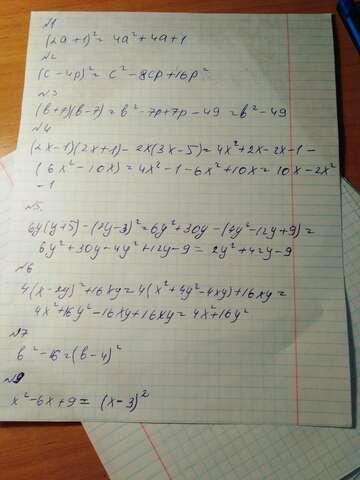 №1
(2a+1)² = 4a²+4a+1
№2
(c-4p)² = c²-8cp+16p²
№3
(b+7)(b-7) = b²-7b+7b-49 = b²-49
№4
(2x-1)(2x+1)-2x(3x-5) = 4x²+2x-2x-1-
(6x²-10x) = 4x²-1-6x²+10x = 10x-2x²
-1
№5
6y(y+5)-(2y-3)² = 6y²+30y-(4y²-12y+9) =
6y²+30y-4y²+12y-9 = 2y²+42y-9
№6
4(x-2y)²+16xy = 4(x²+4y²-4xy)+16xy =
4x²+16y²-16xy+16xy = 4x²+16y²
№7
b²-16 = (b-4)²
№9
x²-6x+9 = (x-3)²